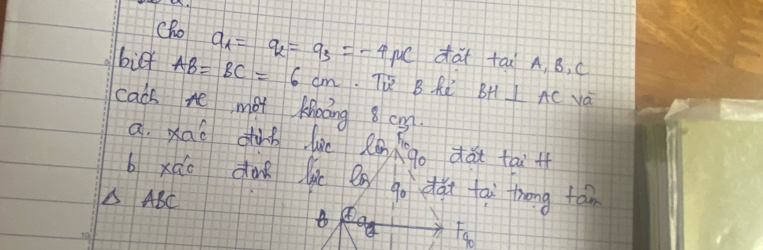 Cho q₁ = q₂ = q₃ = -4μC đặt tại A, B, C
biết AB = BC = 6 cm. Từ B kẻ BH ⊥ AC và
cách AC một khoảng 8 cm.
a. xác định lực lên q₀ đặt tại H
b xác định lực lên q₀ đặt tại trọng tâm
Δ ABC
B
F q₀